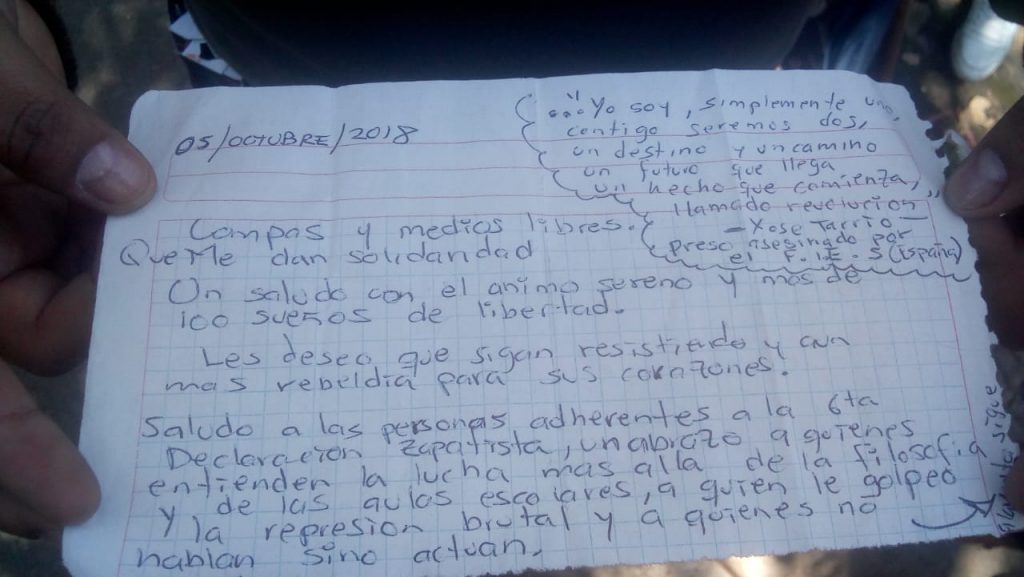 05/OCTUBRE/2018
..." Yo soy, simplemente uno,
contigo seremos dos,
un destino y un camino
un futuro que llega
un hecho que camienza,
llamado revolucion"
- Xose Tarrio -
preso asesinado por
el F.I.E.S (España)
Compas y medios libres.
Que Me dan solidaridad
Un saludo con el animo sereno y mas de
100 sueños de libertad.
Les deseo que sigan resistiendo y aun
mas rebeldia para sus corazones.
Saludo a las personas adherentes a la 6ta
Declaracion Zapatista, un abrazo a quienes
entienden la lucha mas alla de la filosofia
y de las aulas escolares, a quien le golpeo
y la represion brutal y a quienes no
hablan sino actuan.
sigue